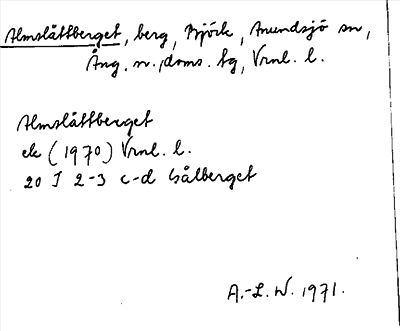 Almslåttberget, berg, Björk, Anundsjö sn,
Ång. n. doms. fg, Vrnl. l.
Almslåttberget
ek (1970) Vrnl. l.
20 I 2-3 c-d Gålberget
A.-L. W. 1971.